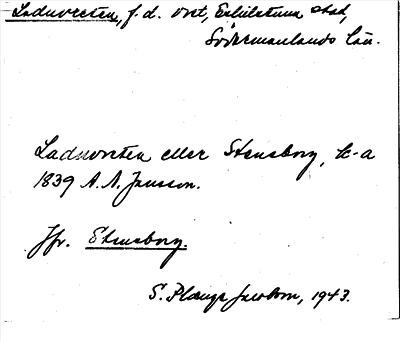 Laduvreten, f.d. vret, Eskilstuna stad,
Södermanlands län.
Laduvreten eller Stensborg, k-a
1839 A. N. Jansson.
Jfr. Stensborg.
S. Plange Jacobson, 1943.